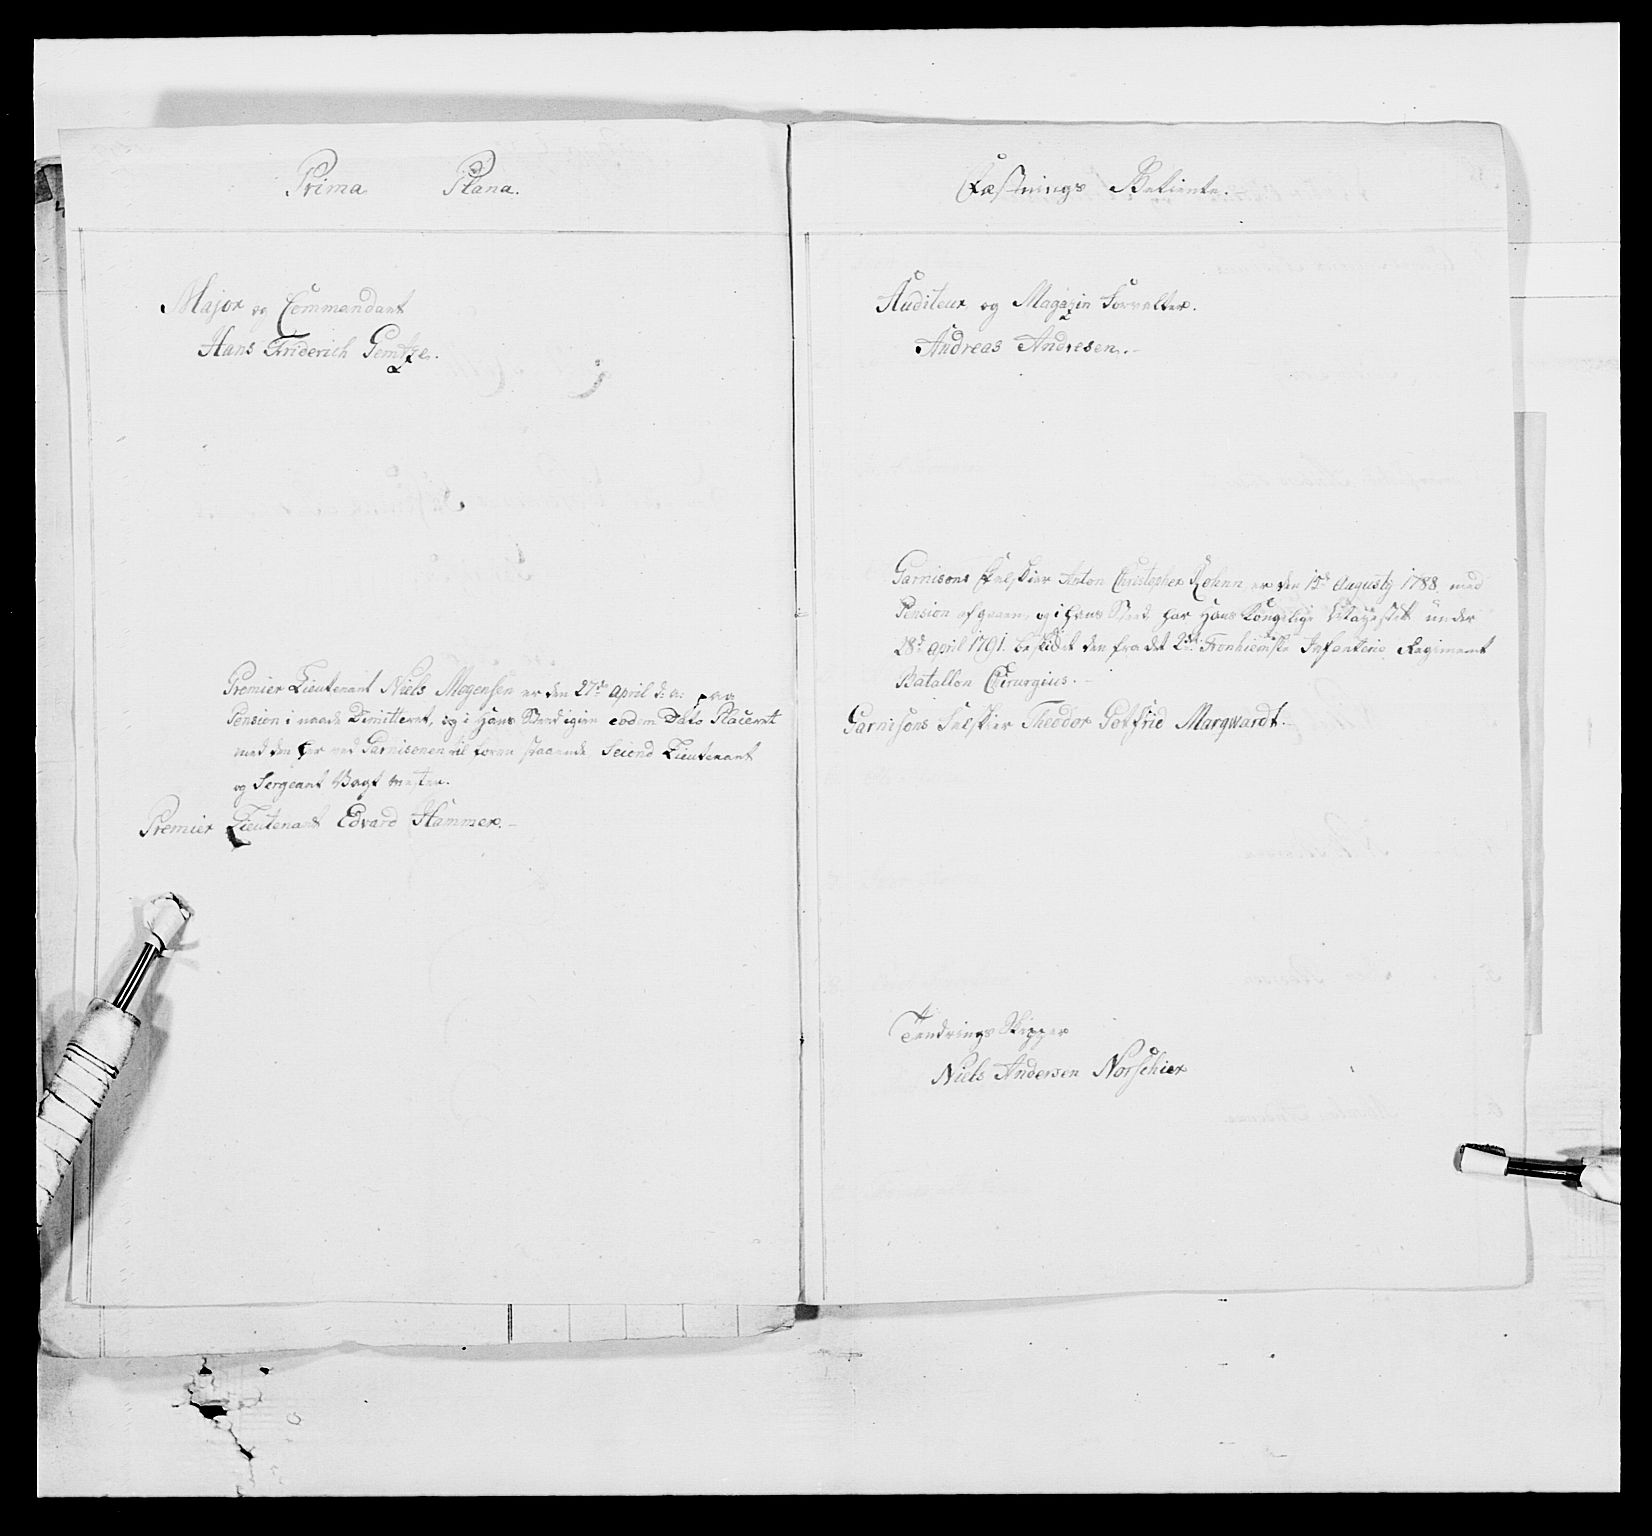 Prima Plana.
Major og Commandant
Hans Friderich Gemtze.
Premier Lieutenant Niels Mogensen er den 27de April d: a: paa
Pension i naade Dimitteret, og i Hans Sted igien eodem Dato Placeret
med den her ved Garnisonen til foren staaende Seiend Lieutenant
og Sergeant Vagt mester.
Premier Lieutenant Edvard Hammer.
Fæstnings Betiente.
Auditeur og Magazin Forvalter.
Andreas Andresen.
Garnisons Feldskier Anton Christopher Rohnn er den 15de Augusty 1788 med
Pension afgaaen, og i Hans Sted har Hans Kongelige Mayestet under
28de April 1791. beskidet den fra det 2det Tronhiemske Infanterie Regiment
Batallon Chirurgius.
Garnisons Felskier Theodor Gotfrid Marqwardt.
Skipper
Niels Andersen Norschier